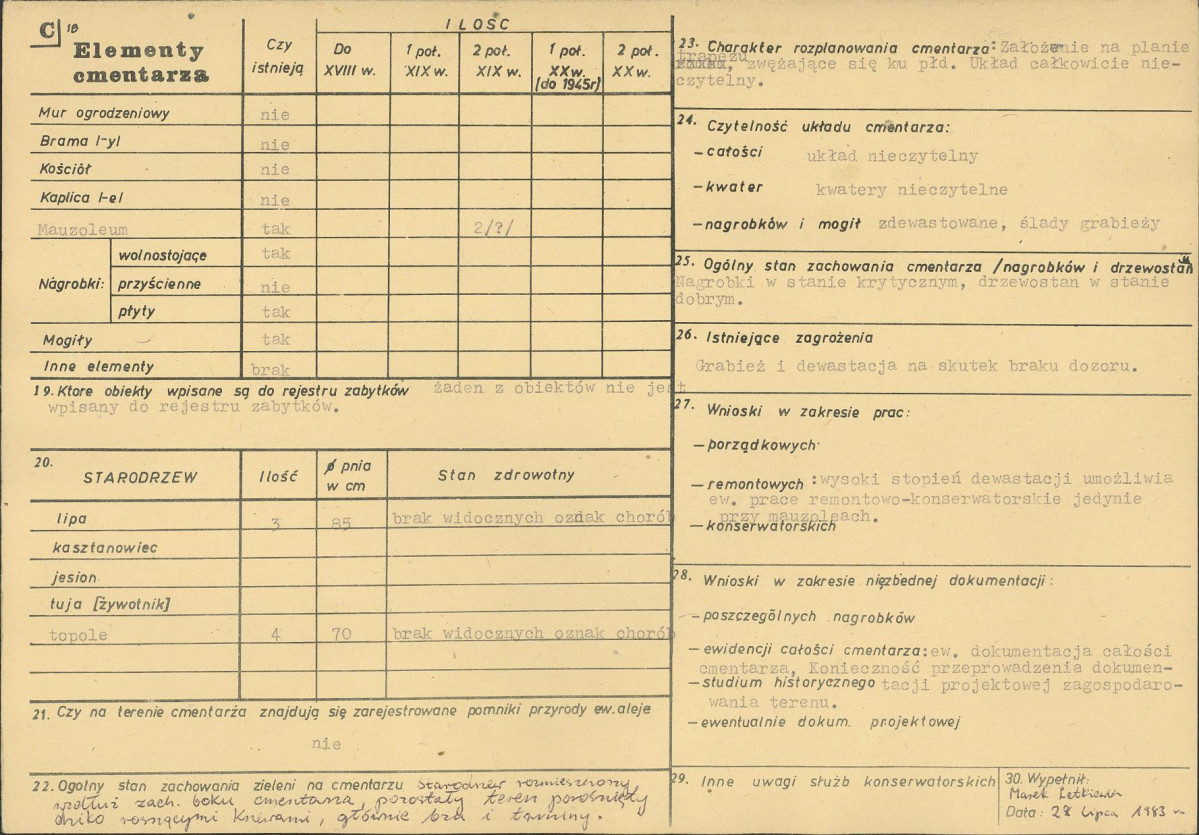 C 18
Elementy
cmentarza
Czy
istnieją
ILOŚĆ
Do
XVIII w.
1 poł.
XIX w.
2 poł.
XIX w.
1 poł.
XX w.
(do 1945r)
2 poł.
XX w.
Mur ogrodzeniowy nie
Brama /-y/ nie
Kościół nie
Kaplica /-e/ nie
Mauzoleum tak 2/?/
Nagrobki:
wolnostojące tak
przyścienne nie
płyty tak
Mogiły tak
Inne elementy brak
19. Ktore obiekty wpisane są do rejestru zabytków żaden z obiektów nie jest
wpisany do rejestru zabytków.
20.
STARODRZEW Ilość ø pnia
w cm
Stan zdrowotny
lipa 3 85 brak widocznych oznak chorób
kasztanowiec
jesion
tuja [żywotnik]
topole 4 70 brak widocznych oznak chorób
21. Czy na terenie cmentarża znajdują się zarejestrowane pomniki przyrody ew. aleje
nie
22. Ogolny stan zachowania zieleni na cmentarzu Starodrzew rozmieszczony
wzdłuż zach. boku cmentarza, pozostały teren porośnięty
dziko rosnącymi krzewami, głównie bzu i tarniny.
23. Charakter rozplanowania cmentarza: Założenie na planie
trapezu
, zwężające się ku płd. Układ całkowicie nie-
czytelny.
24. Czytelność układu cmentarza:
— całości układ nieczytelny
— kwater kwatery nieczytelne
— nagrobków i mogił zdewastowane, ślady grabieży
25. Ogólny stan zachowania cmentarza /nagrobków i drzewostanu
Nagrobki w stanie krytycznym, drzewostan w stanie
dobrym.
26. Istniejące zagrożenia
Grabież i dewastacja na skutek braku dozoru.
27. Wnioski w zakresie prac:
— porządkowych
— remontowych : wysoki stopień dewastacji umożliwia
ew. prace remontowo-konserwatorskie jedynie
przy mauzoleach.
— konserwatorskich
28. Wnioski w zakresie niezbednej dokumentacji:
— poszczególnych nagrobków
— ewidencji całości cmentarza: ew. dokumentacja całości
cmentarza, Konieczność przeprowadzenia dokumen-
— studium historycznego tacji projektowej zagospodaro-
wania terenu.
— ewentualnie dokum. projektowej
29. Inne uwagi służb konserwatorskich
30. Wypełnił:
Marek Letkiewicz
Data: 28 lipca 1983 r.